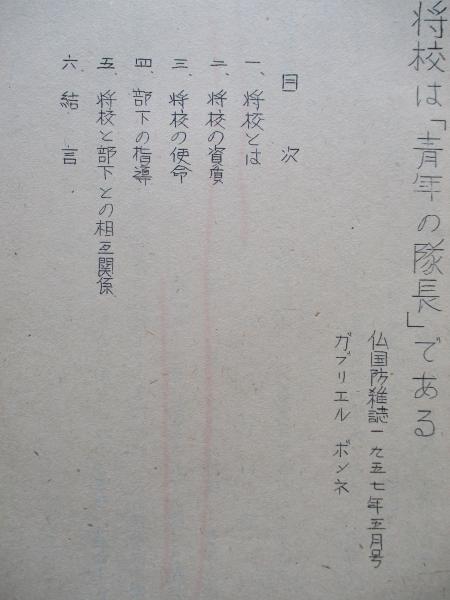 将校は「青年の隊長」である
仏国防雑誌一九五七年五月号
ガブリエル ボンネ
目次
一、将校とは
二、将校の資質
三、将校の使命
四、部下の指導
五、将校と部下との相互関係
六 結言